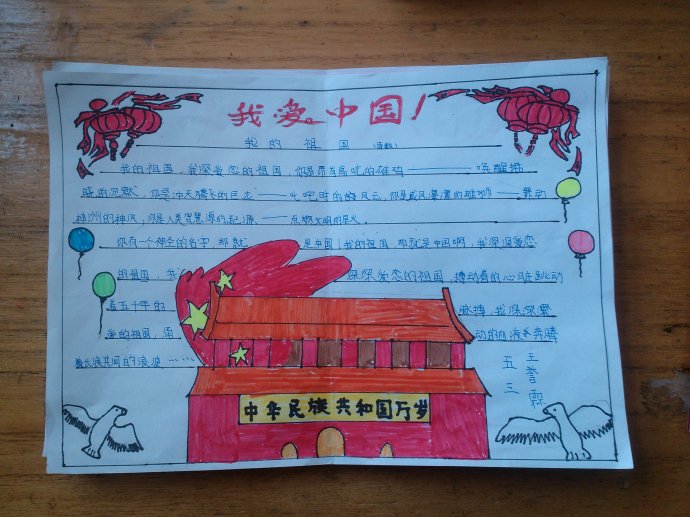 我爱中国!
我的祖国 (节选)
我的祖国,我深爱恋的祖国,你是昂首高吭的雄鸡————唤醒拂
晓的沉默,你是冲天腾飞的巨龙————叱咤时的风云,你是威风凛凛的雄狮————舞动
神洲的神风,你是人类智慧源的起源————点燃文明的星火。
你有一个神圣的名字,那就 是中国!我的祖国,那就是中国啊,我深深爱恋
的祖国,我 深深爱恋的祖国,搏动着的心脏跳动
着五千年的 脉搏,我深深爱
恋的祖国,涌 动的血液奔腾
着长江共同的浪波······
中华民族共和国万岁
五三
王誉霖